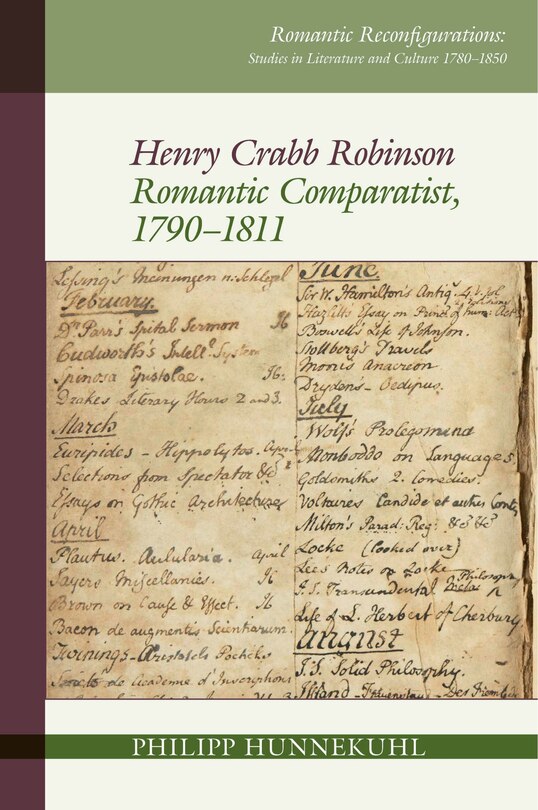 Romantic Reconfigurations:
Studies in Literature and Culture 1780–1850
Henry Crabb Robinson
Romantic Comparatist,
1790–1811
Lessing's Meinungen n: Schlegel
February.
Dr Parr's Spital Sermon
Cudworth's Intelll System
Spinosa Epistolae.
Drakes Literary Hours 2 and 3.
March
Euripides – Hippolytos.
Selections from Spectator &c
Essays on Gothic Architecture
April
Plautus. Aulularia. April
Sayers Miscellanies.
Brown on Cause & Effect.
Bacon de augmentis Scientiarum.
Twinings – Aristotle's
de Academie d'Inscriptions
June.
Sir W. Hamilton's Antiq.
Hazlitts Essay on Princ: of hum: Act
Boswells Life of Johnson.
Stollberg's Travels
Monis Anacreon
Drydens – Oedipus.
July
Wolfs Prolegomena
Monboddo on Languages
Goldsmiths 2. Comedies.
Voltaires Candide et autres Contes
Milton's Parad: Reg: &c &c
Locke (looked over)
Lees Notes on Locke
J. S. Transcendental Philosophy
Life of L. Herbert of Cherbury
August
J. S. Solid Philosophy.
Iffland
PHILIPP HUNNEKUHL